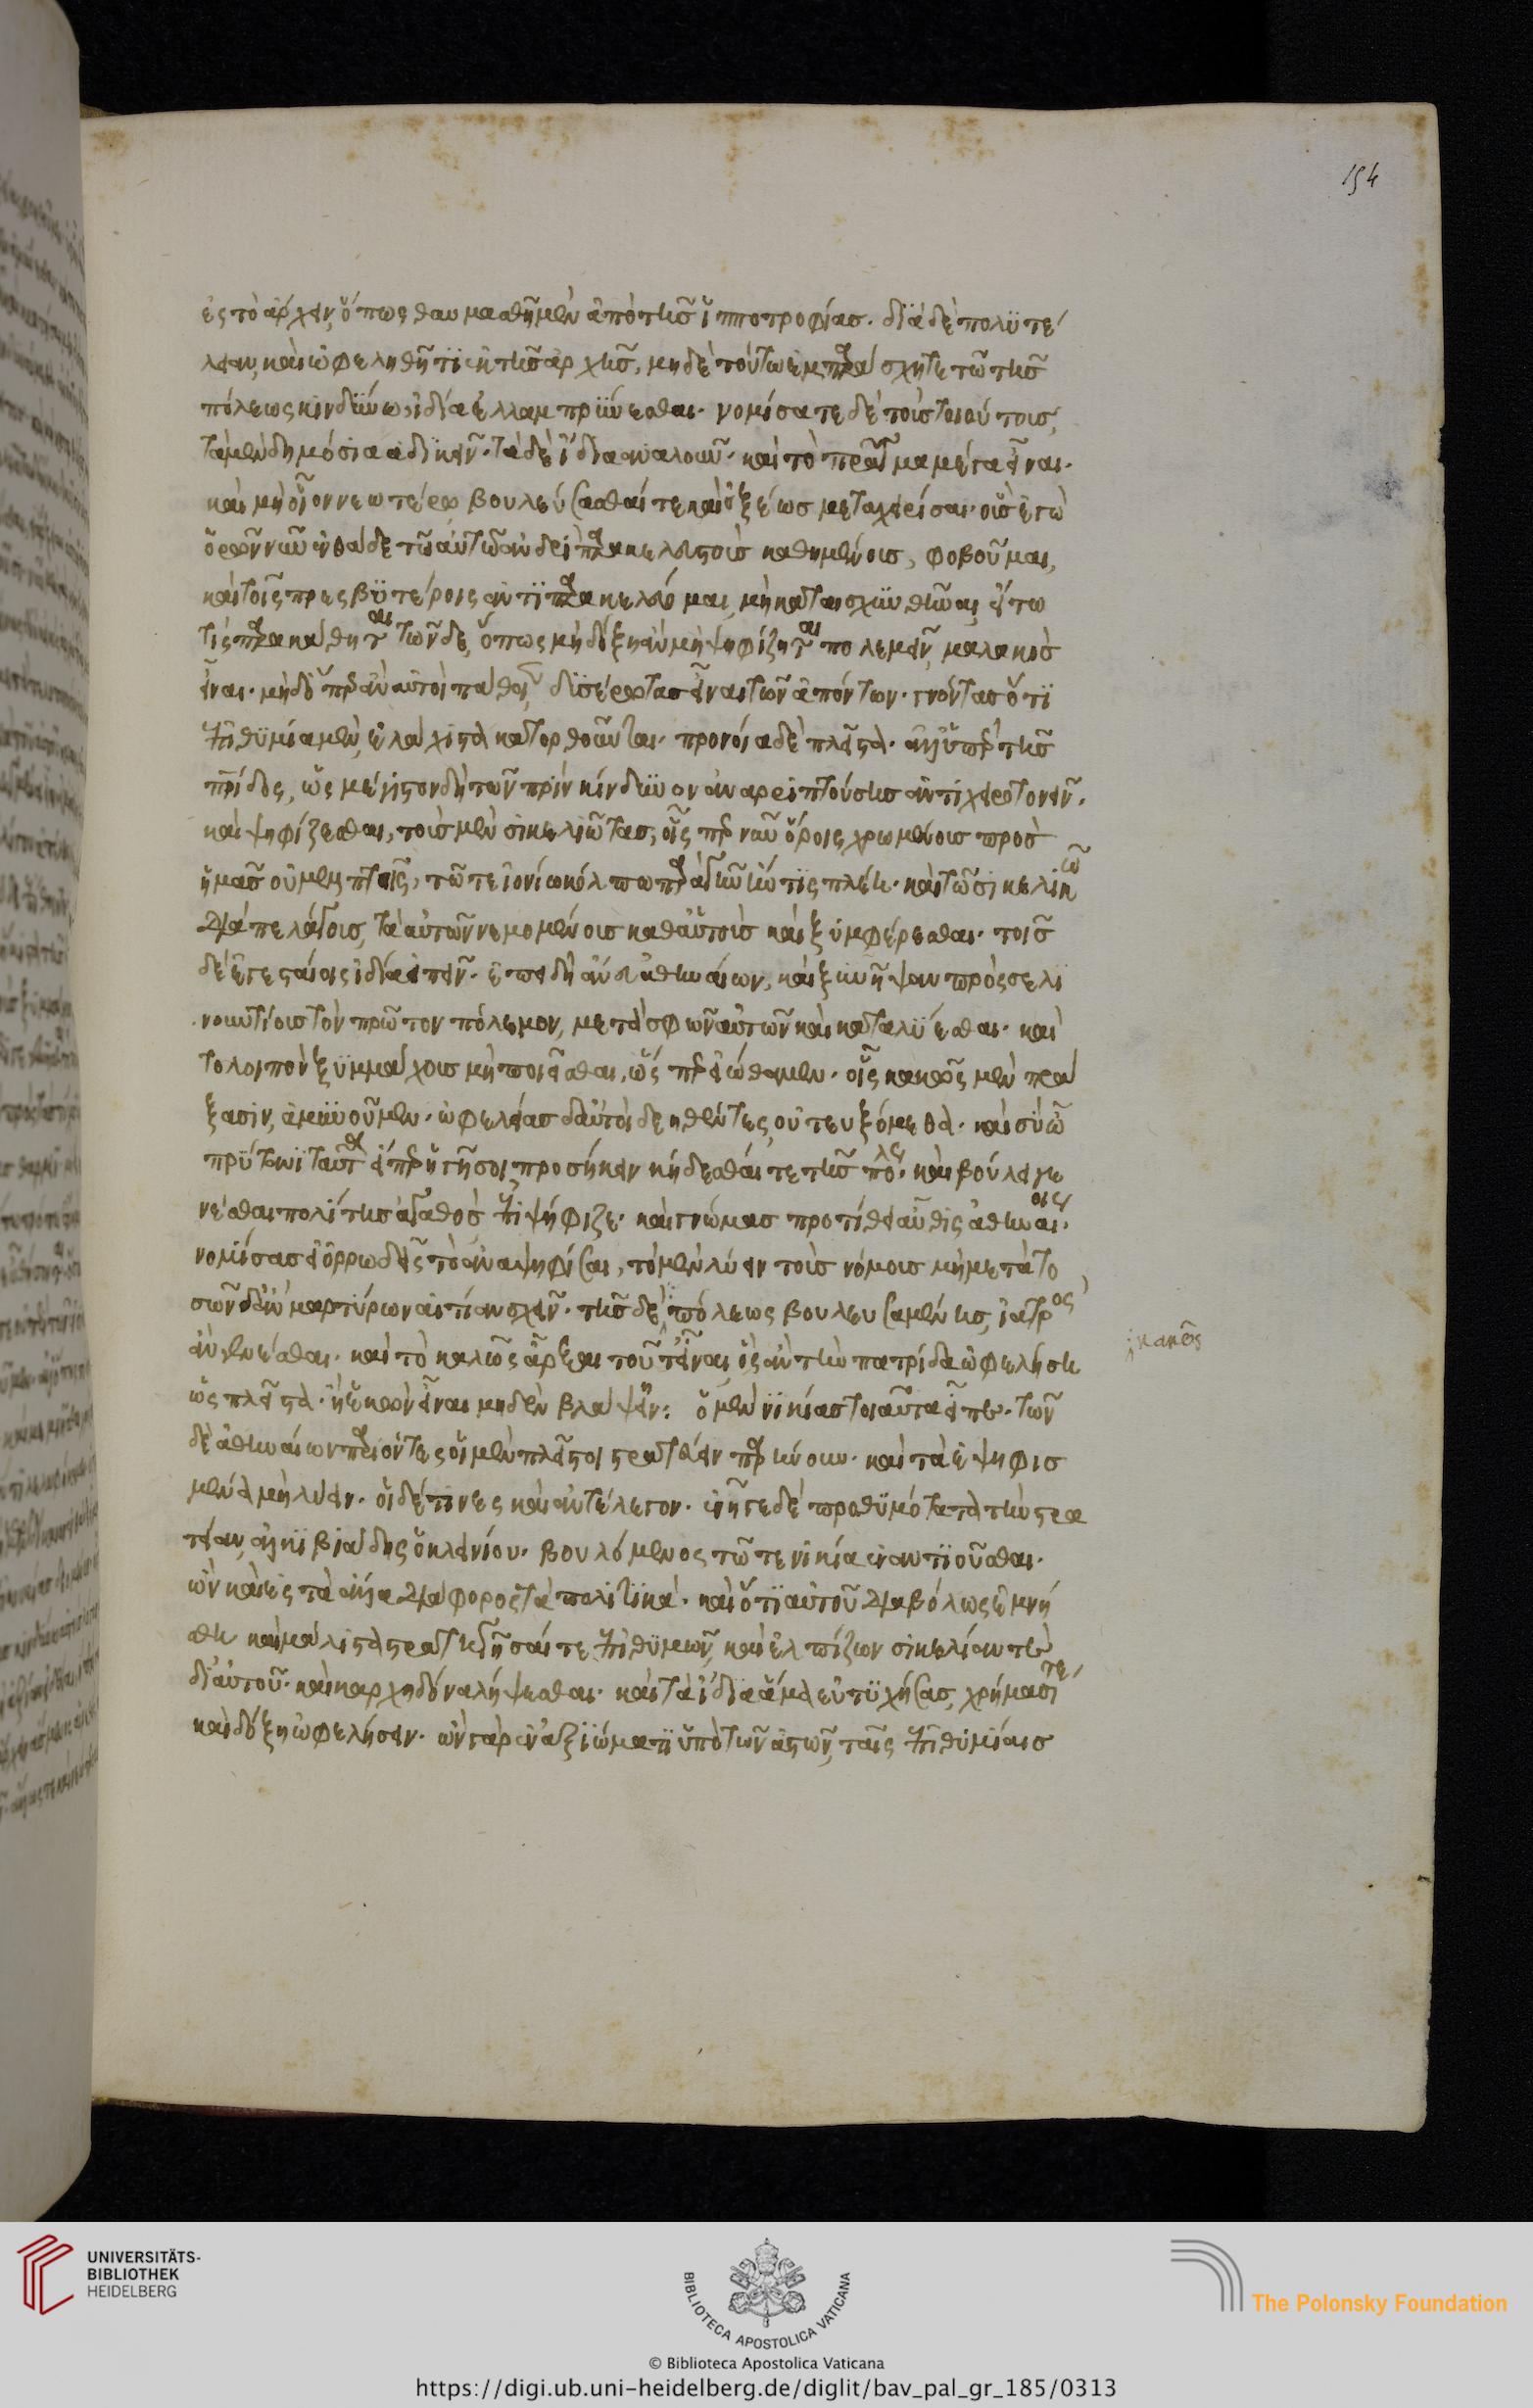 ἐς τὸ ἄρχειν, ὅπως θαυμασθῆ μὲν ἀπὸ τῆς ἱπποτροφίας. διὰ δὲ πολυτέ
λειαν, καὶ ὠφεληθῆ τι ἐκ τῆς ἀρχῆς, μηδὲ τούτω ἐμπαράσχητε τῶ τῆς
πόλεως κινδύνω, ἰδία ἐλλαμπρύνεσθαι. νομίσατε δὲ τοὺς τοιούτους,
τὰ μὲν δημόσια ἀδικεῖν. τὰ δὲ ἴδια ἀναλοῦν. καὶ τὸ πρᾶγμα μέγα εἶναι.
καὶ μὴ οἷον νεωτέρω βουλεύσασθαί τε καὶ ὀξέως μεταχειρίσαι. οὓς ἐγὼ
ὁρῶν νῦν ἐνθάδε τῶ αὐτῶ ἀνδρὶ παρακελευστοὺς καθημένους, φοβοῦμαι,
καὶ τοῖς πρεσβυτέροις ἀντιπαρακελεύομαι, μὴ καταισχυνθῆναι, εἴ τω
τὶς παρακάθηται τῶνδε, ὅπως μὴ δόξη ἂν μὴ ψηφίζηται πολεμεῖν, μαλακὸς
εἶναι. μηδ' ὅπερ ἂν αὐτοὶ πάθοιεν, δυσέρωτας εἶναι τῶν ἀπόντων. γνόντας ὅτι
ἐπιθυμία μὲν, ἐλάχιστα κατορθοῦνται. προνοία δὲ πλεῖστα. ἀλλ' ὑπὲρ τῆς
πατρίδος, ὡς μέγιστον δὴ τῶν πρὶν κίνδυνον ἀναρριπτούσης ἀντιχειροτονεῖν.
καὶ ψηφίζεσθαι, τοὺς μὲν σικελιώτας, οἷς περ νῦν ὅροις χρωμένους πρὸς
ἡμᾶς οὐ μεμπτοῖς, τῶ τε ἰονίω κόλπω παρὰ γῆν ἤν τις πλέη. καὶ τῶ σικελικῶ
διὰ πελάγους, τὰ αὑτῶν νεμομένους καθ' αὑτοὺς καὶ ξυμφέρεσθαι. τοῖς
δὲ ἐγεσταίοις ἰδία εἰπεῖν. ἐπειδὴ ἄνευ ἀθηναίων, καὶ ξυνῆψαν πρὸς σελι
νουντίους τὸν πρῶτον πόλεμον, μετὰ σφῶν αὐτῶν καὶ καταλύεσθαι. καὶ
τολοιπὸν ξυμμάχους μὴ ποιεῖσθαι, ὥς περ εἰώθαμεν. οἷς κακῶς μὲν πρά
ξασιν, ἀμυνοῦμεν. ὠφελείας δ' αὐτοὶ δεηθέντες, οὐ τευξόμεθα. καὶ σὺ ὦ
πρύτανι ταῦτα εἴπερ ἡγῆ σοι, προσήκειν κήδεσθαί τε τῆς πόλεως, καὶ βούλει γε
νέσθαι πολίτης ἀγαθὸς, ἐπιψήφιζε. καὶ γνώμας προτίθει αὖθις ἀθηναίοις.
νομίσας εἰ ὀρρωδεῖς τὸ ἀναψηφίσαι, τὸ μὲν λύειν τοὺς νόμους μὴ μετὰ το
σῶνδ' ἂν μαρτύρων αἰτίαν σχεῖν. τῆς δὲ πόλεως βουλευσαμένης, ἰατρὸς
ἱκανῶς
ἂν γενέσθαι. καὶ τὸ καλῶς ἄρξαι τοῦτ' εἶναι, ὃς ἂν τὴν πατρίδα ὠφελήση
ὡς πλεῖστα. ἢ ἑκὼν εἶναι μηδὲν βλάψη: ὁ μὲν νικίας τοιαῦτα εἶπε. τῶν
δὲ ἀθηναίων παριόντες οἱ μὲν πλεῖστοι στρατεύειν παρήνουν. καὶ τὰ ἐψηφισ
μένα μὴ λύειν. οἱ δέ τινες καὶ ἀντέλεγον. ἐνῆγε δὲ προθυμότατα τὴν στρα
τείαν, ἀλκιβιάδης ὁ κλεινίου. βουλόμενος τῶ τε νικία ἐναντιοῦσθαι.
ὢν καὶ ἐς τὰ ἄλλα διάφορος τὰ πολιτικά. καὶ ὅτι αὐτοῦ διαβόλως ἐμνή
σθη καὶ μάλιστα στρατηγῆσαί τε ἐπιθυμῶν, καὶ ἐλπίζων σικελίαν τε
δι' αὐτοῦ. καὶ καρχηδόνα λήψεσθαι. καὶ τὰ ἴδια ἅμα εὐτυχήσας, χρήμασί τε
καὶ δόξη ὠφελήσειν. ὢν γὰρ ἐν ἀξιώματι ὑπὸ τῶν ἀστῶν, ταῖς ἐπιθυμίαις
154
UNIVERSITÄTS-
BIBLIOTHEK
HEIDELBERG
BIBLIOTECA APOSTOLICA VATICANA
The Polonsky Foundation
© Biblioteca Apostolica Vaticana
https://digi.ub.uni-heidelberg.de/diglit/bav_pal_gr_185/0313